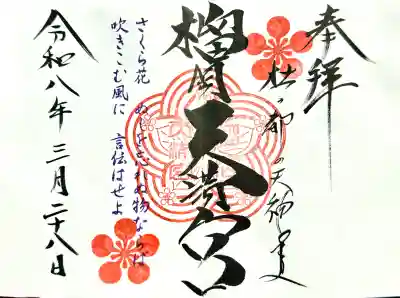 奉拝
杜の都の天神さま
榴岡天満宮
さくら花 ぬしを忘れぬ物ならば
吹きこむ風に 言伝はせよ
令和八年三月二十八日